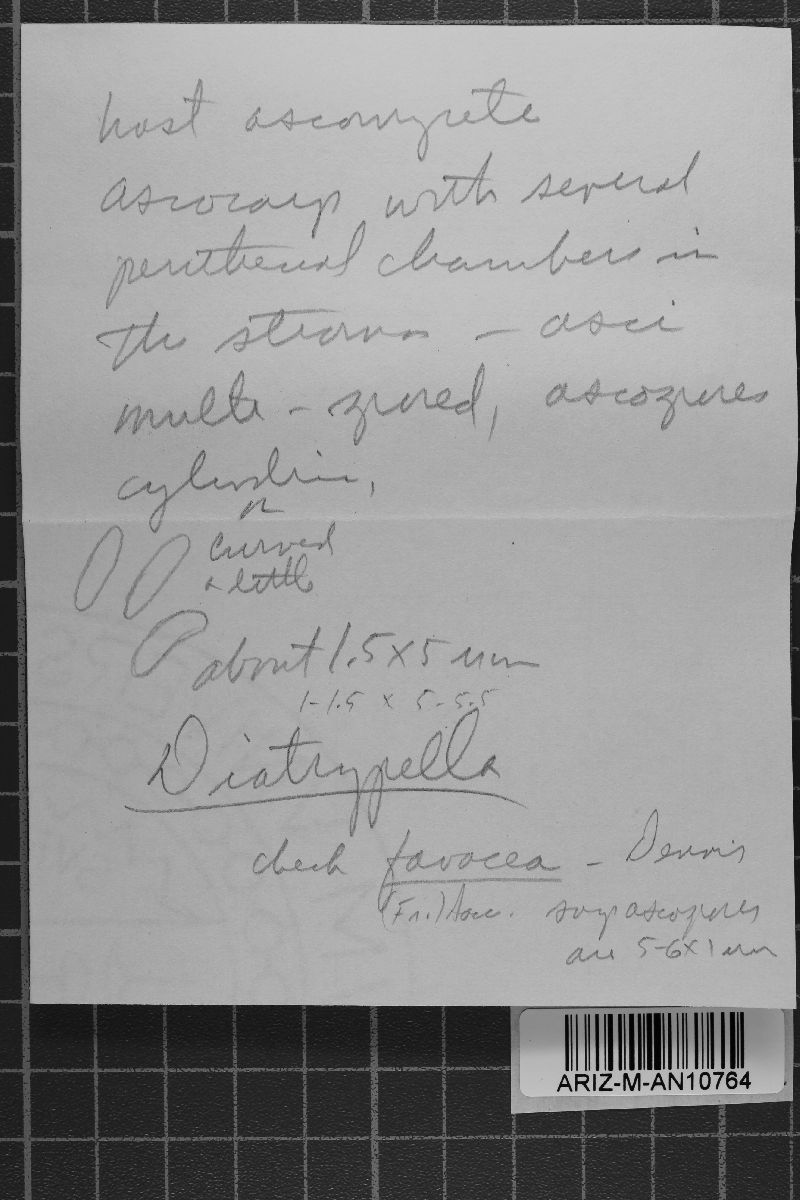 host ascomycete
ascocarp with several
perithecial chambers in
the stroma - asci
multi-spored, ascospores
cylindric,
or
curved
a little
about 1.5 x 5 um
1-1.5 x 5-5.5
Diatrypella
check favacea - Dennis
(Fr.) says ascospores
are 5-6 x 1 um
ARIZ-M-AN10764